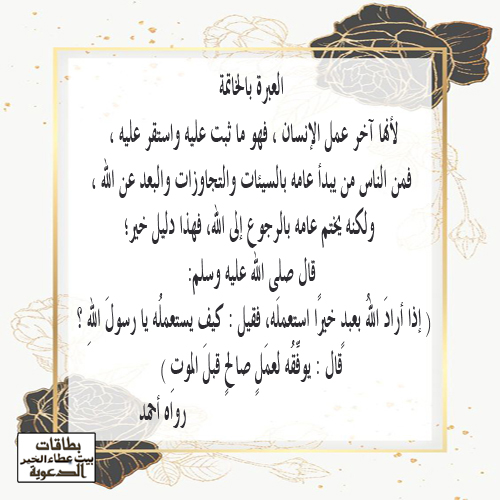 العبرة بالخاتمة
لأنها آخر عمل الإنسان ، فهو ما ثبت عليه واستقر عليه ،
فمن الناس من يبدأ عامه بالسيئات والتجاوزات والبعد عن الله ،
ولكنه يختم عامه بالرجوع إلى الله، فهذا دليل خير؛
قال صلى الله عليه وسلم:
( إذا أرادَ اللهُ بعبدٍ خيرًا استعملَه، فقيل : كيف يستعملُه يا رسولَ اللهِ ؟
قال : يوفِّقُه لعمَلٍ صالحٍ قبلَ الموتِ )
رواه أحمد
بطاقات
بيت عطاء الخير
الدعوية